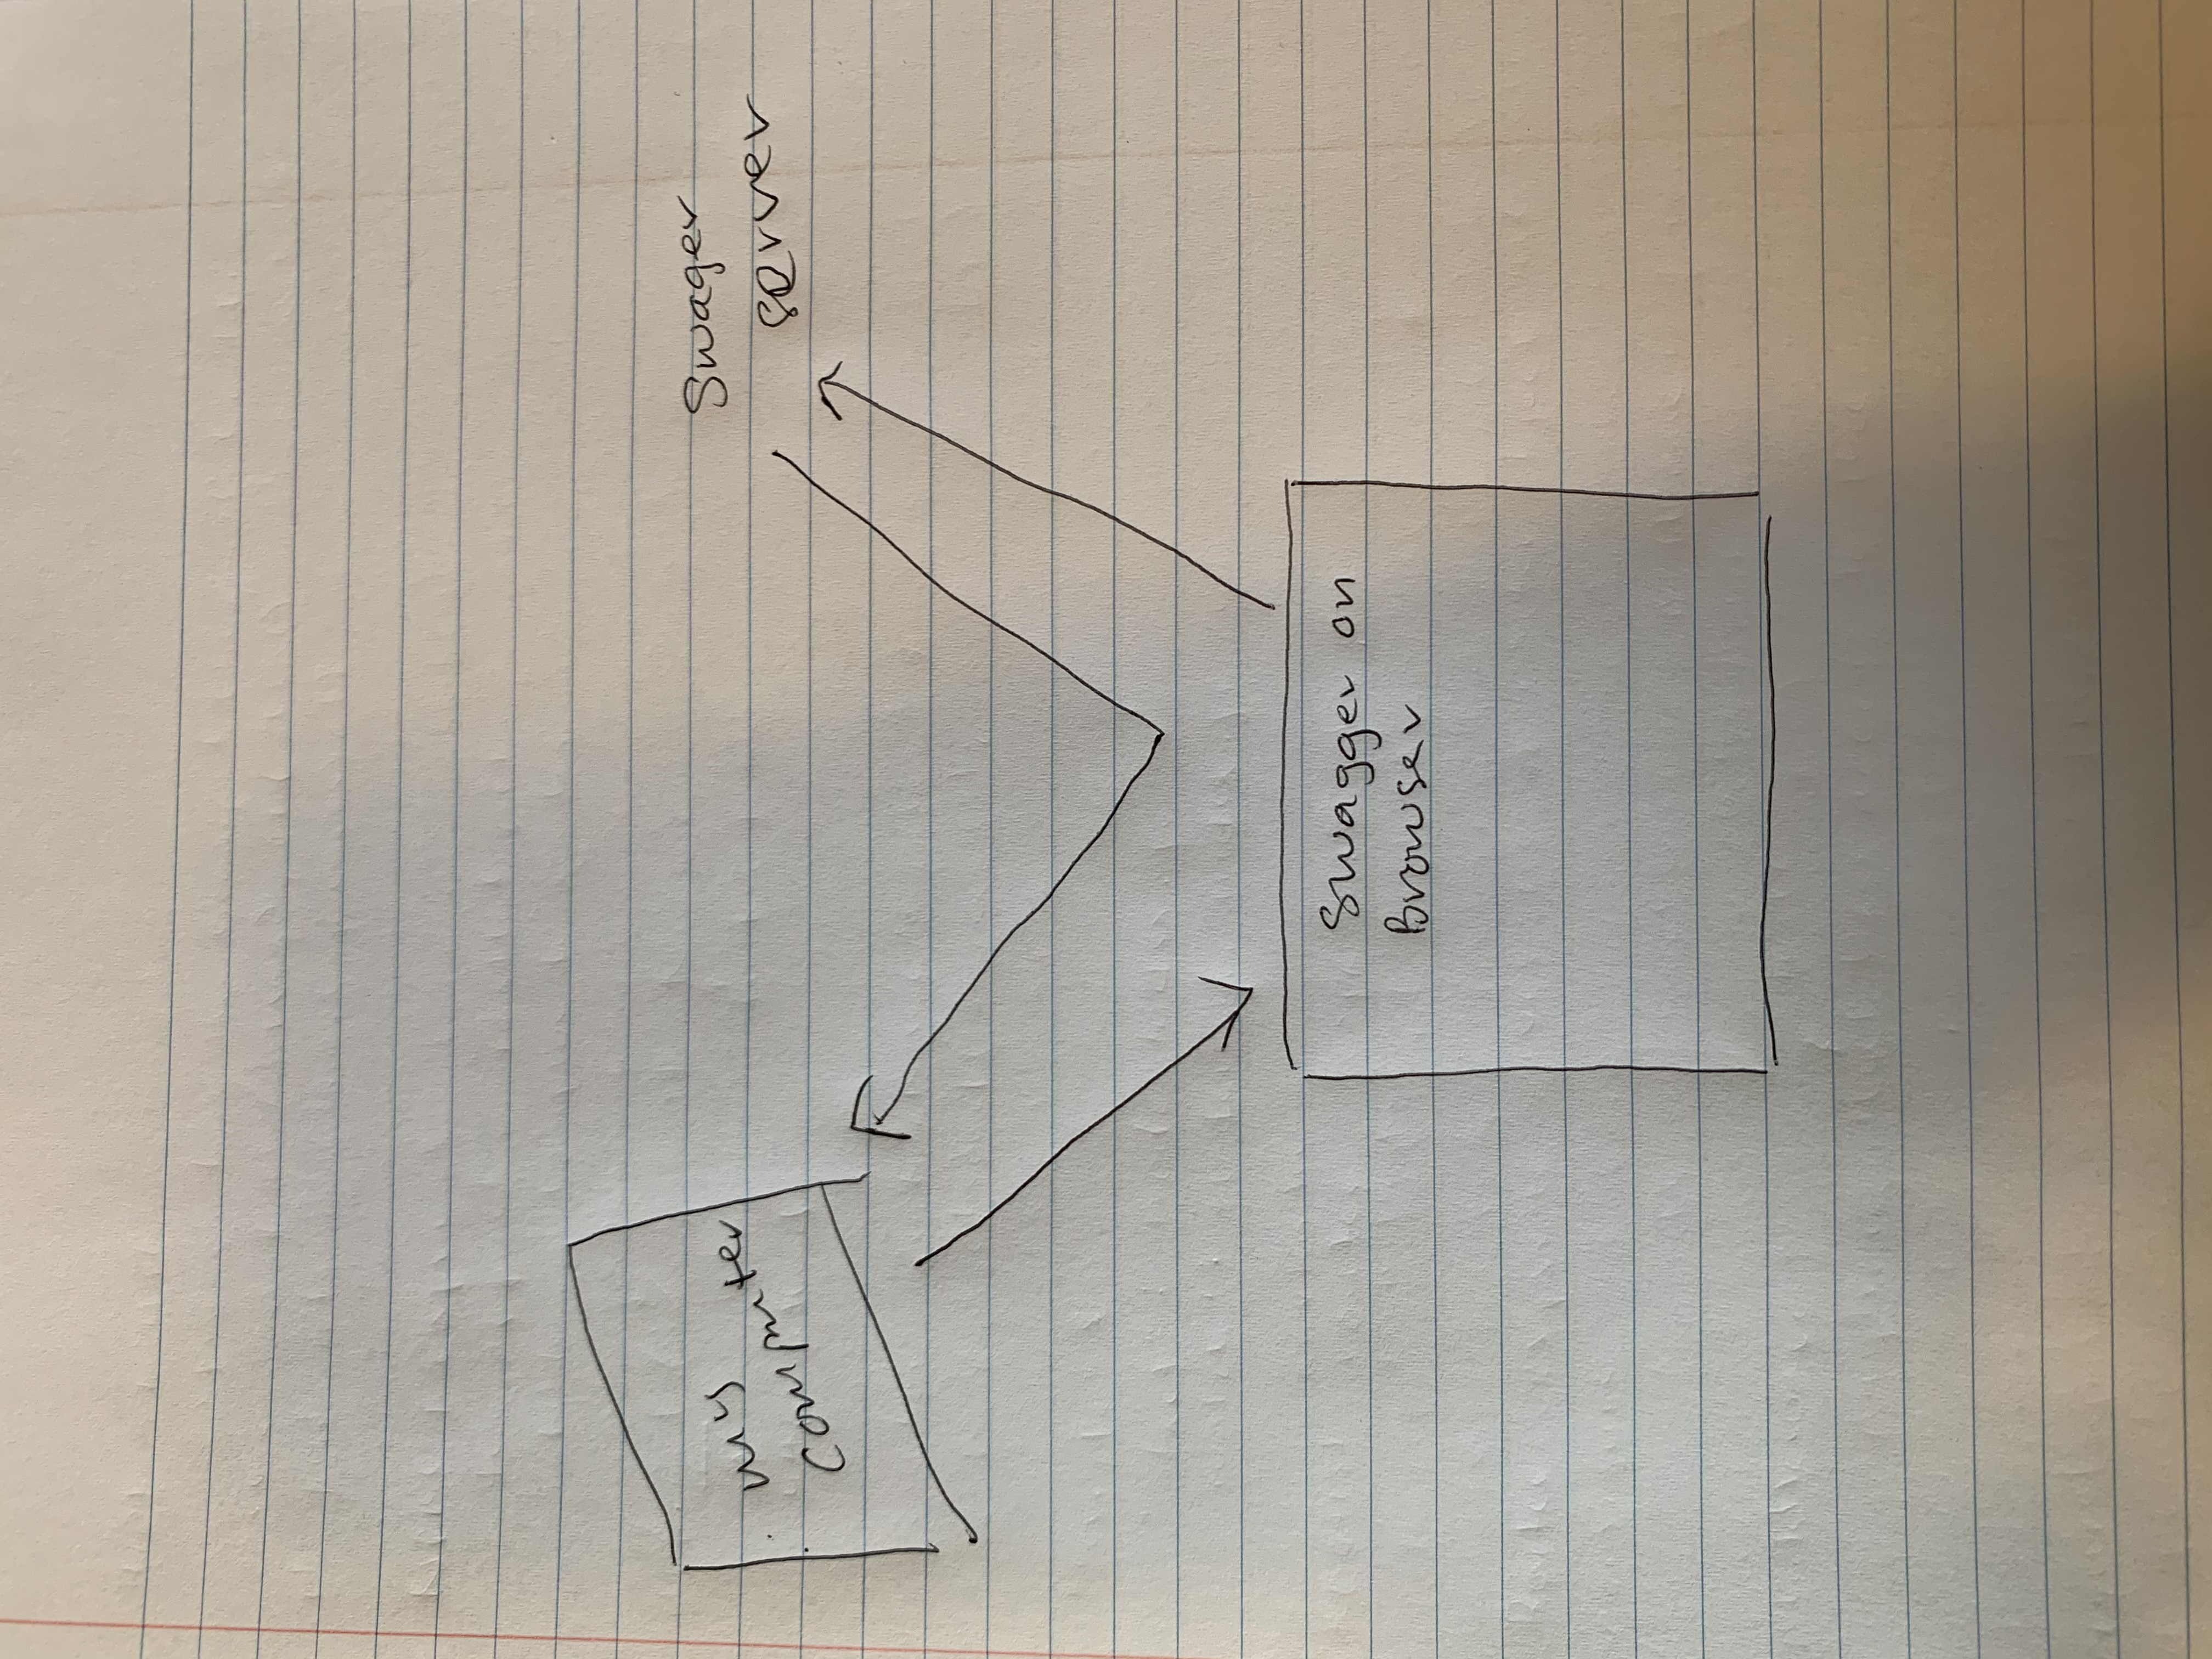 my
computer
Swager
server
Swagger on
Browser